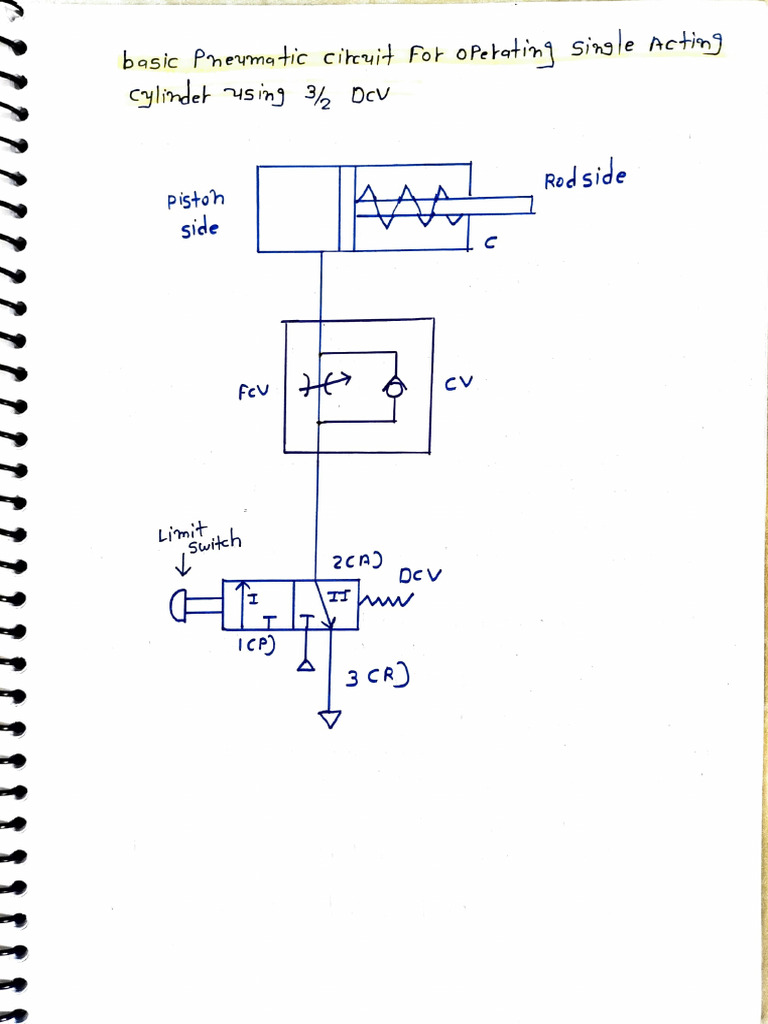 basic Pneumatic circuit For operating single Acting
cylinder using 3/2 DCV
Piston
side
Rod side
C
FCV
CV
Limit
switch
2(A)
DCV
I
II
1(P)
3(R)